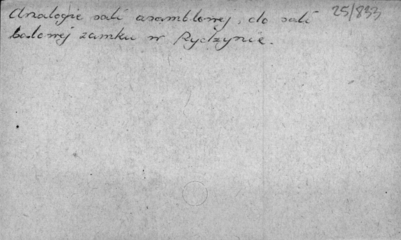 Analogie sali asamblowej do sali 25/833
balowej zamku w Rydzynie.